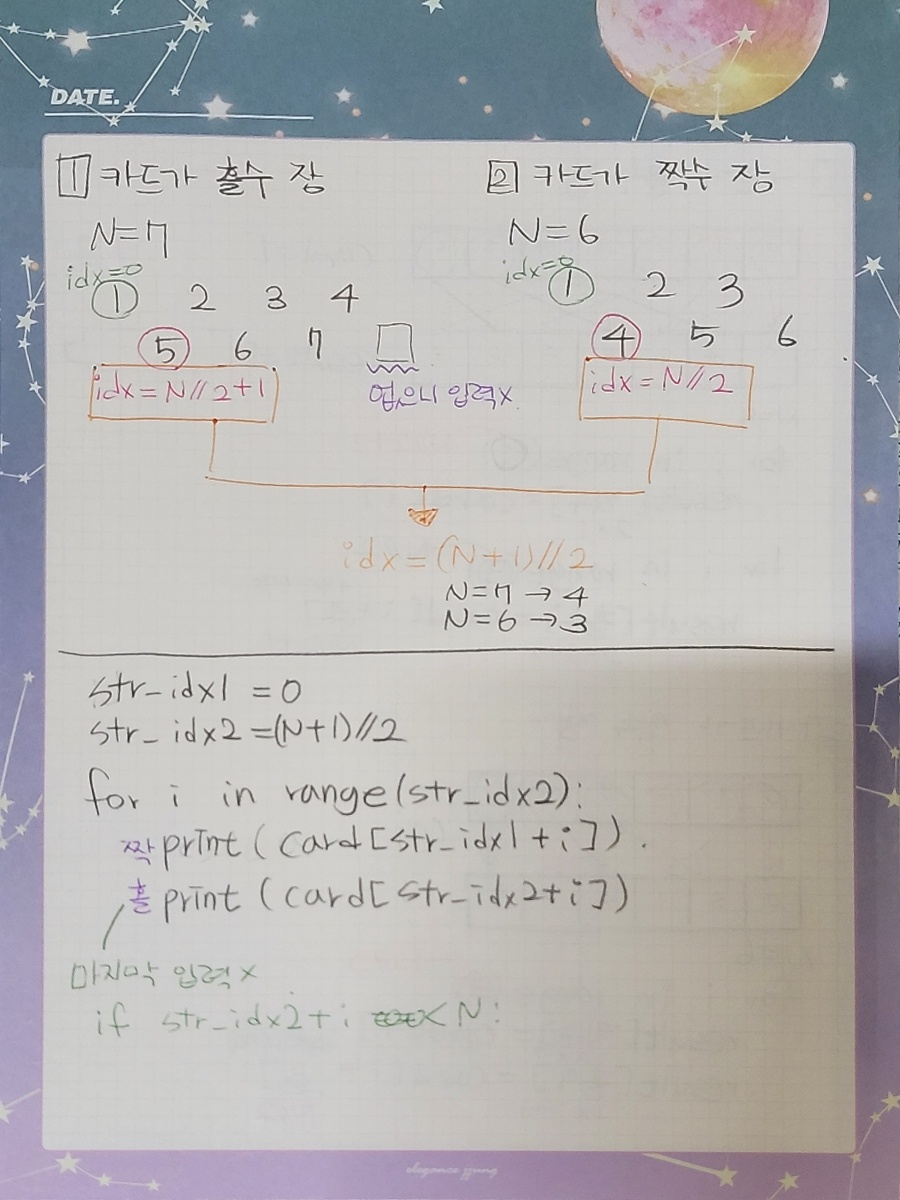 DATE.
1 카드가 홀수 장
N=7
idx=0
1 2 3 4
5 6 7
idx=N//2+1
없으니 입력x
2 카드가 짝수 장
N=6
idx=0
1 2 3
4 5 6
idx=N//2
idx=(N+1)//2
N=7 → 4
N=6 → 3
str_idx1 = 0
str_idx2 =(N+1)//2
for i in range(str_idx2):
짝 print(card[str_idx1+i]).
홀 print(card[str_idx2+i])
마지막 입력x
if str_idx2+i < N: